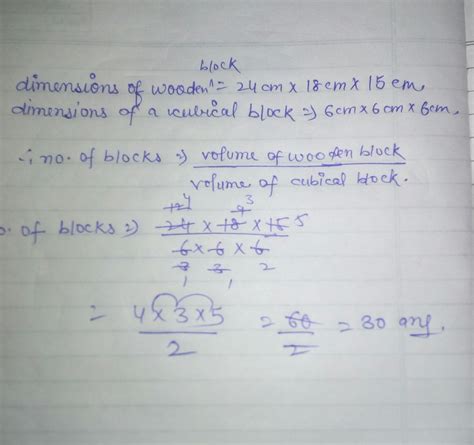 block
dimensions of wooden ^ = 24cm x 18cm x 15cm,
dimensions of a cubical block => 6cm x 6cm x 6cm.
∴ no. of blocks => volume of wooden block
volume of cubical block.
o. of blocks => 24 x 18 x 15 5
6 x 6 x 6
3 3 2
1 1
= 4 x 3 x 5 = 60 = 30 ans.
2 2